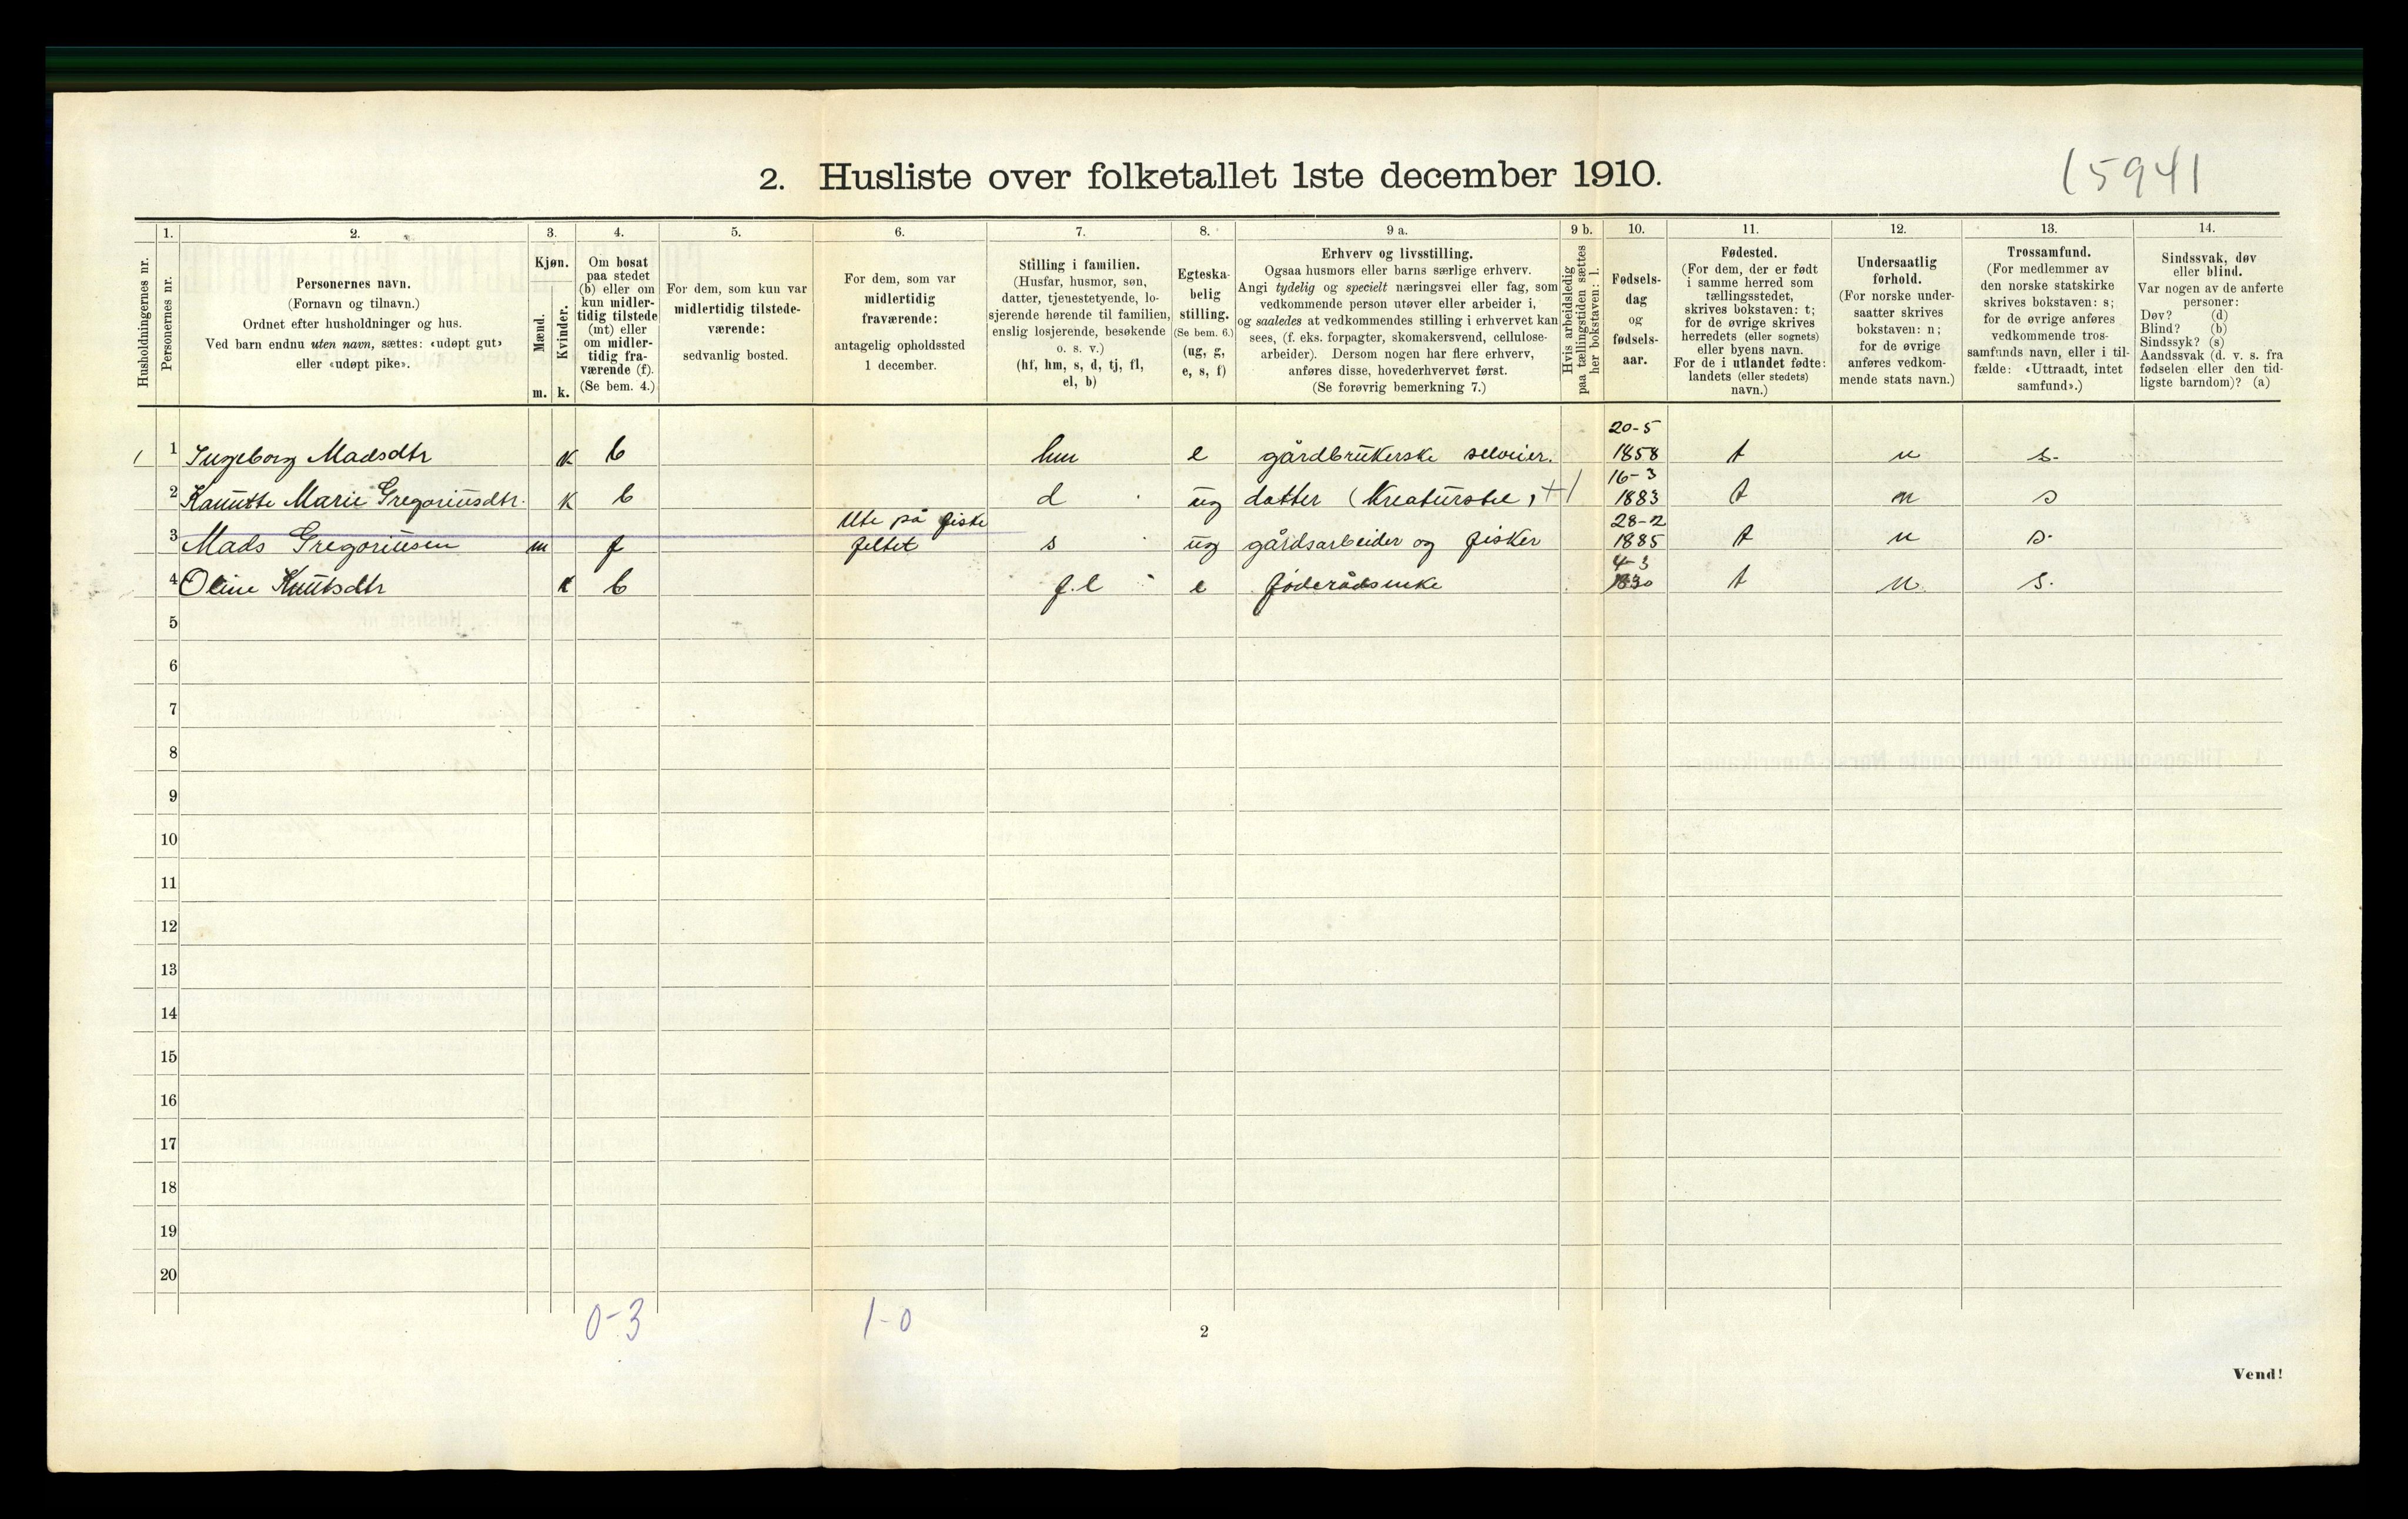 2. Husliste over folketallet 1ste december 1910.
15941
Husholdningernes nr.
1.
Personernes nr.
2.
Personernes navn.
(Fornavn og tilnavn.)
Ordnet efter husholdninger og hus.
Ved barn endnu uten navn, sættes: «udøpt gut»
eller «udøpt pike».
3.
Kjøn.
Mænd.
Kvinder.
m. k.
4.
Om bosat
paa stedet
(b) eller om
kun midler-
tidig tilstede
(mt) eller
om midler-
tidig fra-
værende (f).
(Se bem. 4.)
5.
For dem, som kun var
midlertidig tilstede-
værende:
sedvanlig bosted.
6.
For dem, som var
midlertidig
fraværende:
antagelig opholdssted
1 december.
7.
Stilling i familien.
(Husfar, husmor, søn,
datter, tjenestetyende, lo-
sjerende hørende til familien,
enslig losjerende, besøkende
o. s. v.)
(hf, hm, s, d, tj, fl,
el, b)
8.
Egteska-
belig
stilling.
(Se bem. 6.)
(ug, g,
e, s, f)
9 a.
Erhverv og livsstilling.
Ogsaa husmors eller barns særlige erhverv.
Angi tydelig og specielt næringsvei eller fag, som
vedkommende person utøver eller arbeider i,
og saaledes at vedkommendes stilling i erhvervet kan
sees, (f. eks. forpagter, skomakersvend, cellulose-
arbeider). Dersom nogen har flere erhverv,
anføres disse, hovederhvervet først.
(Se forøvrig bemerkning 7.)
9 b.
Hvis arbeidsledig
paa tællingstiden sættes
her bokstaven: l.
10.
Fødsels-
dag
og
fødsels-
aar.
11.
Fødested.
(For dem, der er født
i samme herred som
tællingsstedet,
skrives bokstaven: t;
for de øvrige skrives
herredets (eller sognets)
eller byens navn.
For de i utlandet fødte:
landets (eller stedets)
navn.)
12.
Undersaatlig
forhold.
(For norske under-
saatter skrives
bokstaven: n;
for de øvrige
anføres vedkom-
mende stats navn.)
13.
Trossamfund.
(For medlemmer av
den norske statskirke
skrives bokstaven: s;
for de øvrige anføres
vedkommende tros-
samfunds navn, eller i til-
fælde: «Uttraadt, intet
samfund».)
14.
Sindssvak, døv
eller blind.
Var nogen av de anførte
personer:
Døv? (d)
Blind? (b)
Sindssyk? (s)
Aandssvak (d. v. s. fra
fødselen eller den tid-
ligste barndom)? (a)
1 1 Ingeborg Madsdtr k b hm e gårdbrukerske selveier. 20-5 1858 t n s.
2 Marie Gregoriusdtr. k b d ug datter (Kreaturstel) 16-3 1883 t n s
3 Mads Gregoriusen m f Ute på fiske feltet s ug gårdsarbeider og fisker 28-2 1885 t n s.
4 Oline Knutsdtr k b f.l e føderådsenke 4-3 1830 t n s.
5
6
7
8
9
10
11
12
13
14
15
16
17
18
19
20
0-3
1-0
2
Vend!